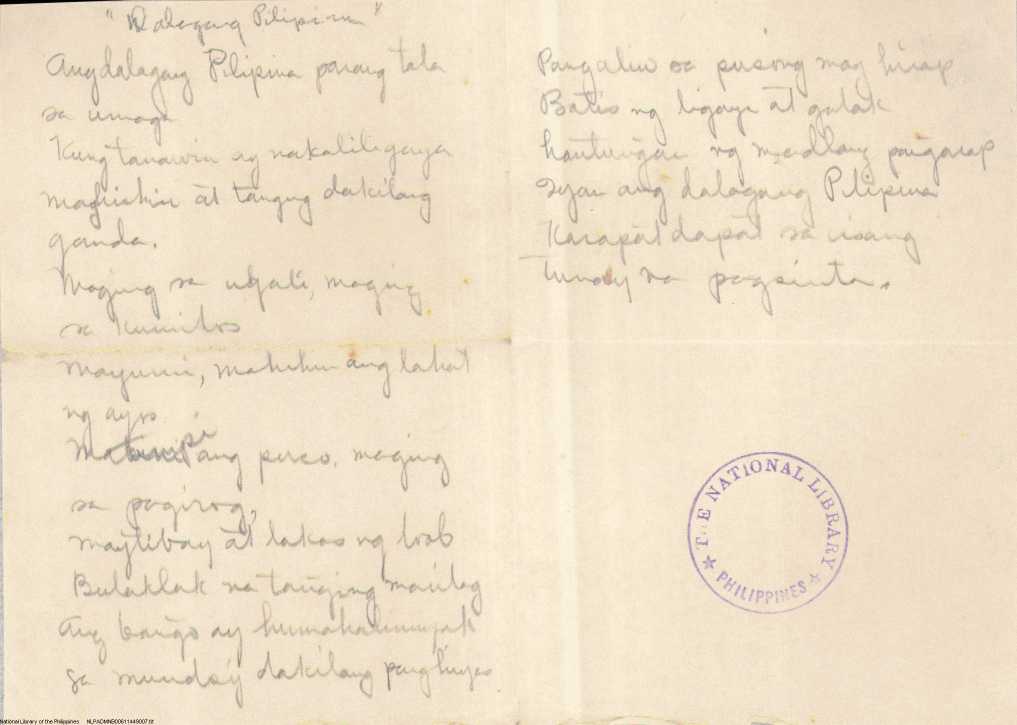 "Dalagang Pilipina"
Ang dalagang Pilipina parang tala
sa umaga
Kung tanawin ay nakaliligaya
maginting at tanging dakilang
ganda.
Maging sa ugali, maging
sa kumilos
mayumi, mahinhin ang lahat
ng ayos
Matimpi ang puso, maging
sa pagirog,
maytibay at lakas ng loob
Bulaklak na tanging marilag
Ang bango ay humahalimuyak
sa mundo'y dakilang panghiyas
Pangaliw sa pusong mag hirap
Batis ng ligaya at galak
hantungan ng madlang pangarap
Iyan ang dalagang Pilipina
Karapat dapat sa isang
tunay na pagsinta.
THE NATIONAL LIBRARY
PHILIPPINES
National Library of the Philippines NLPADMNB00611449007.tif